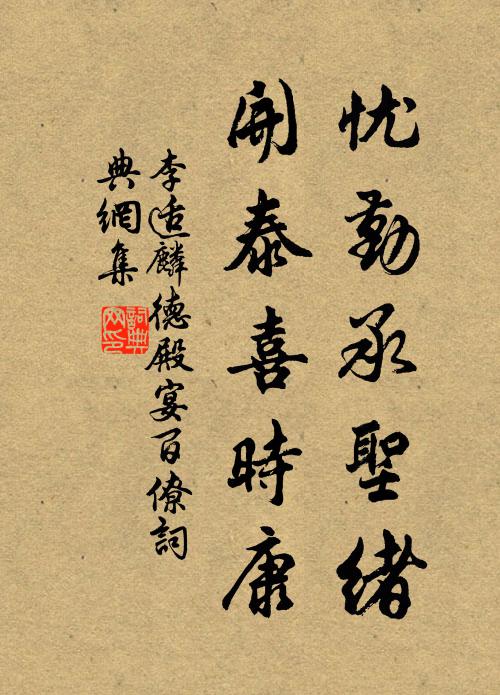 忧勤承聖緒
開泰喜時康
李适麟德殿宴百僚詞
典網集
詞典
网印